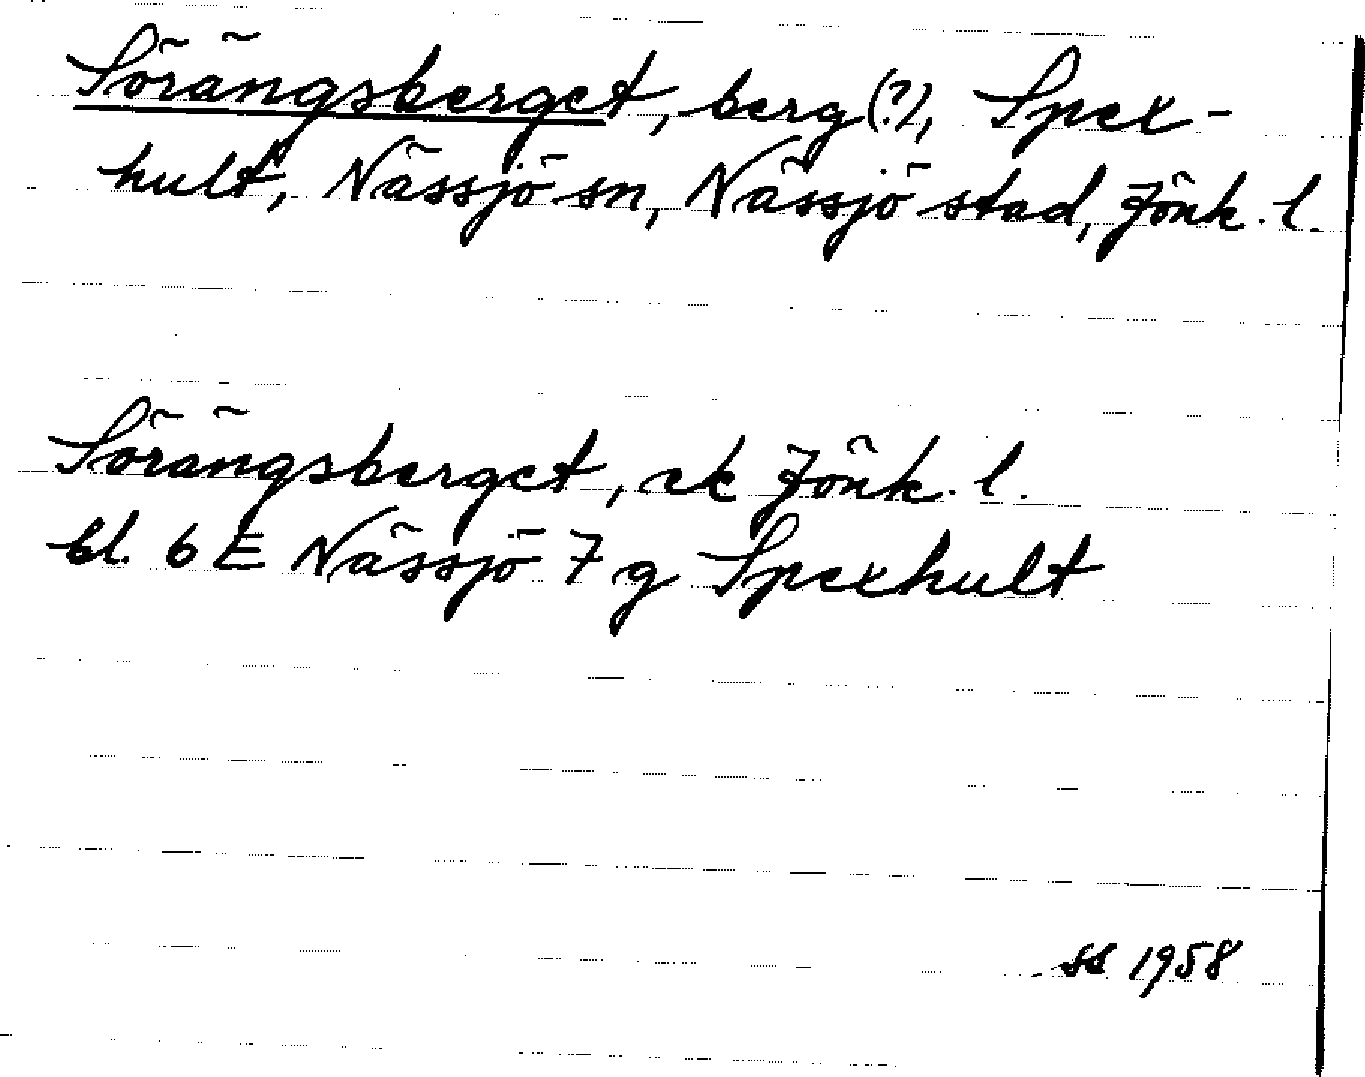 Sörängsberget, berg (?), Spex-
hult, Nässjö sn, Nässjö stad, Jönk. l.
Sörängsberget, ek Jönk. l.
bl. 6 E Nässjö 7 g Spexhult
SS 1958